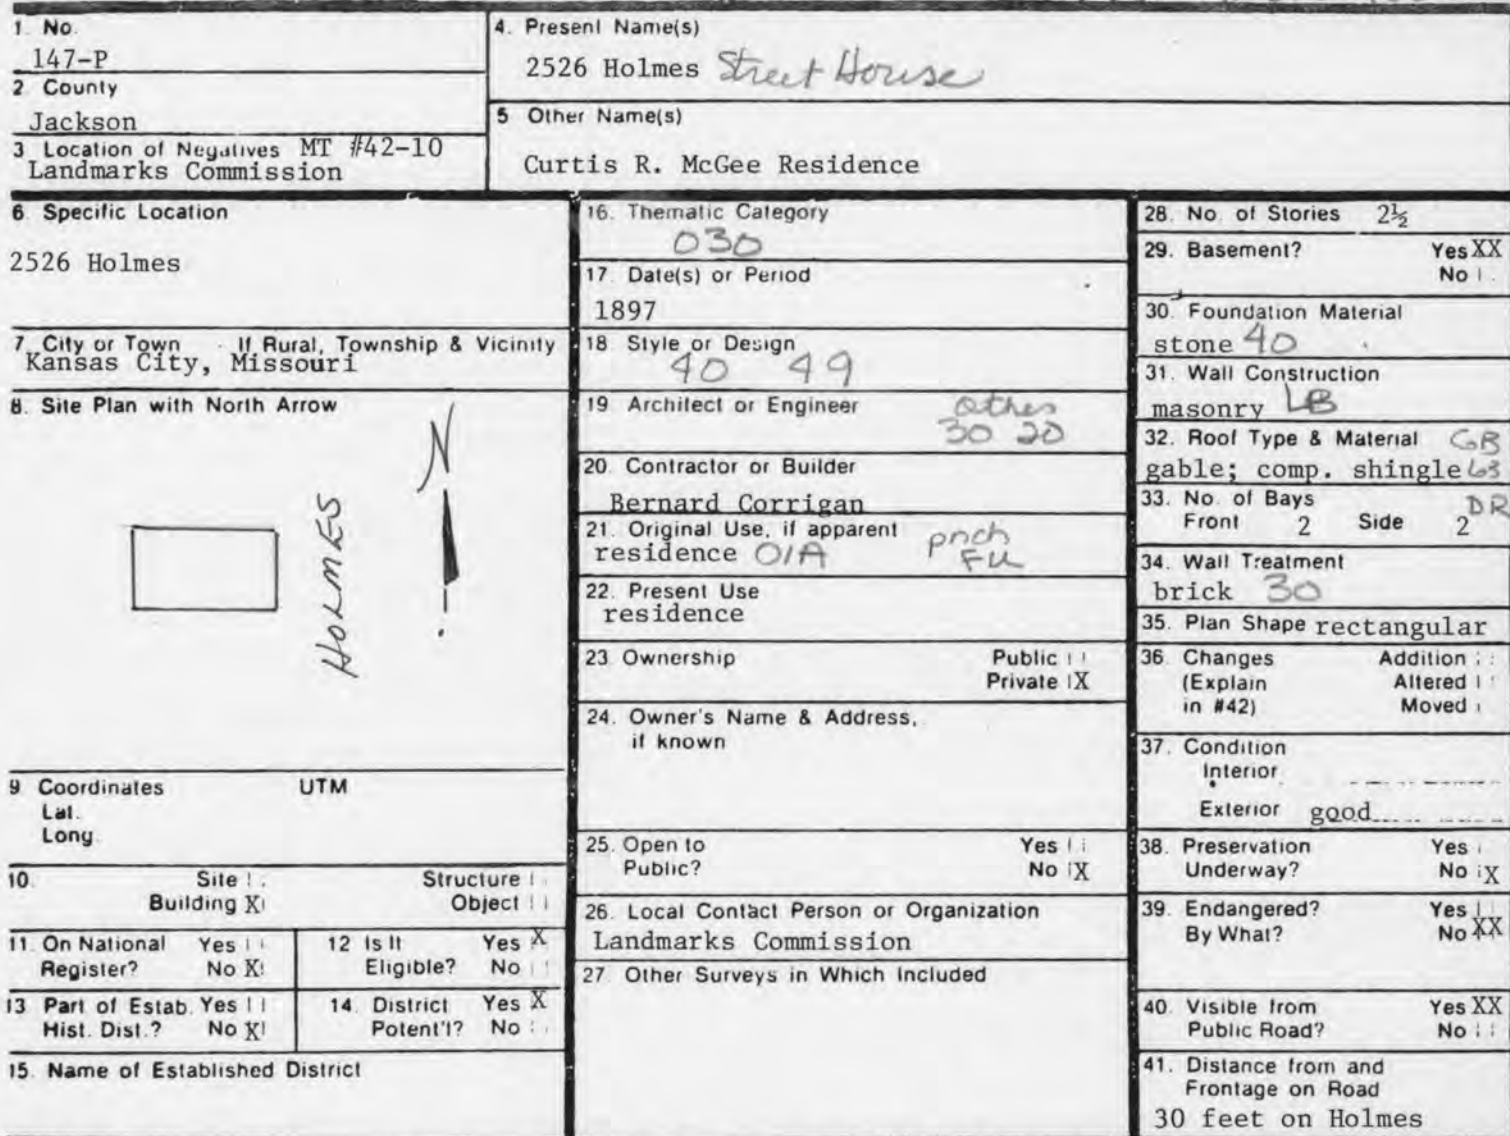 1. No.
147-P
2. County
Jackson
3 Location of Negatives MT #42-10
Landmarks Commission
4. Present Name(s)
2526 Holmes Street House
5 Other Name(s)
Curtis R. McGee Residence
6. Specific Location
2526 Holmes
7. City or Town If Rural, Township & Vicinity
Kansas City, Missouri
8. Site Plan with North Arrow
N
HOLMES
9 Coordinates UTM
Lat.
Long.
10. Site Structure
Building X Object
11. On National Yes
Register? No X
12 Is It Yes X
Eligible? No
13 Part of Estab. Yes
Hist. Dist.? No X
14. District Yes X
Potent'l? No
15. Name of Established District
16. Thematic Category
030
17. Date(s) or Period
1897
18. Style or Design
40 49
19 Architect or Engineer
30 20
20. Contractor or Builder
Bernard Corrigan
21. Original Use, if apparent
residence 01A
prch
FU
22. Present Use
residence
23. Ownership Public
Private X
24. Owner's Name & Address,
if known
25. Open to Yes
Public? No X
26. Local Contact Person or Organization
Landmarks Commission
27 Other Surveys in Which Included
28. No. of Stories 2½
29. Basement? Yes XX
No
30. Foundation Material
stone 40
31. Wall Construction
masonry LB
32. Roof Type & Material GB
gable; comp. shingle 63
33. No. of Bays DR
Front 2 Side 2
34. Wall Treatment
brick 30
35. Plan Shape rectangular
36. Changes Addition
(Explain Altered
in #42) Moved
37. Condition
Interior
Exterior good
38. Preservation Yes
Underway? No X
39. Endangered? Yes
By What? No XX
40. Visible from Yes XX
Public Road? No
41. Distance from and
Frontage on Road
30 feet on Holmes